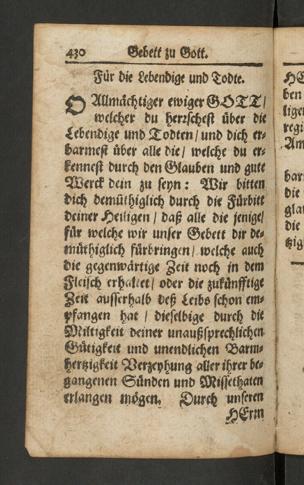 430 Gebett zu Gott.
Für die Lebendige und Todte.
O Allmächtiger ewiger GOTT/
welcher du herrschest über die
Lebendige und Todten/ und dich er-
barmest über alle die/ welche du er-
kennest durch den Glauben und gute
Werck dein zu seyn: Wir bitten
dich demüthiglich durch die Fürbitt
deiner Heiligen/ daß alle die jenige/
für welche wir unser Gebett dir de-
müthiglich fürbringen/ welche auch
die gegenwärtige Zeit noch in dem
Fleisch erhaltet/ oder die zukünfftige
Zeit ausserhalb deß Leibs schon em-
pfangen hat/ dieselbige durch die
Miltigkeit deiner unaußsprechlichen
Gütigkeit und unendlichen Barm-
hertzigkeit Verzeyhung aller ihrer be-
gangenen Sünden und Missethaten
erlangen mögen. Durch unseren
HErrn